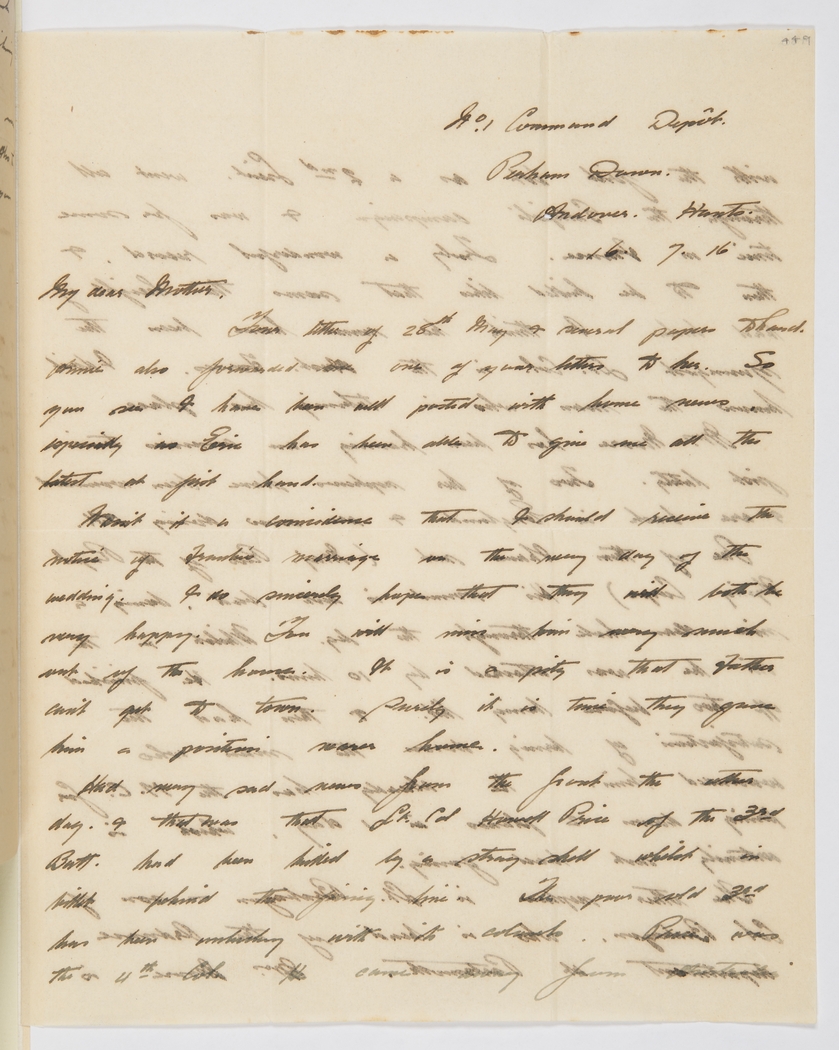 No. 1 Command Depôt.
Perham Down.
Andover. Hants.
16. 7. 16
My dear Mother,
Your letter of 28th May & several papers to hand.
also forwarded one of your letters to her. So
you see I have been well posted with home news,
especially as Eric has been able to give me all the
latest at first hand.
Wasn't it a coincidence that I should receive the
notice of Frankie's marriage on the very day of the
wedding. I do sincerely hope that they will both be
very happy. You will miss him very much
out of the house. It is a pity that Father
can't get to town. Surely it is time they gave
him a position nearer home.
Had very sad news from the front the other
day. & that was that Lt. Col Howell Price of the 3rd
Batt. had been killed by a stray shell whilst in
billets behind the firing line. The poor old 3rd
has been unlucky with its colonels. Price was
the 4th Col. H came from